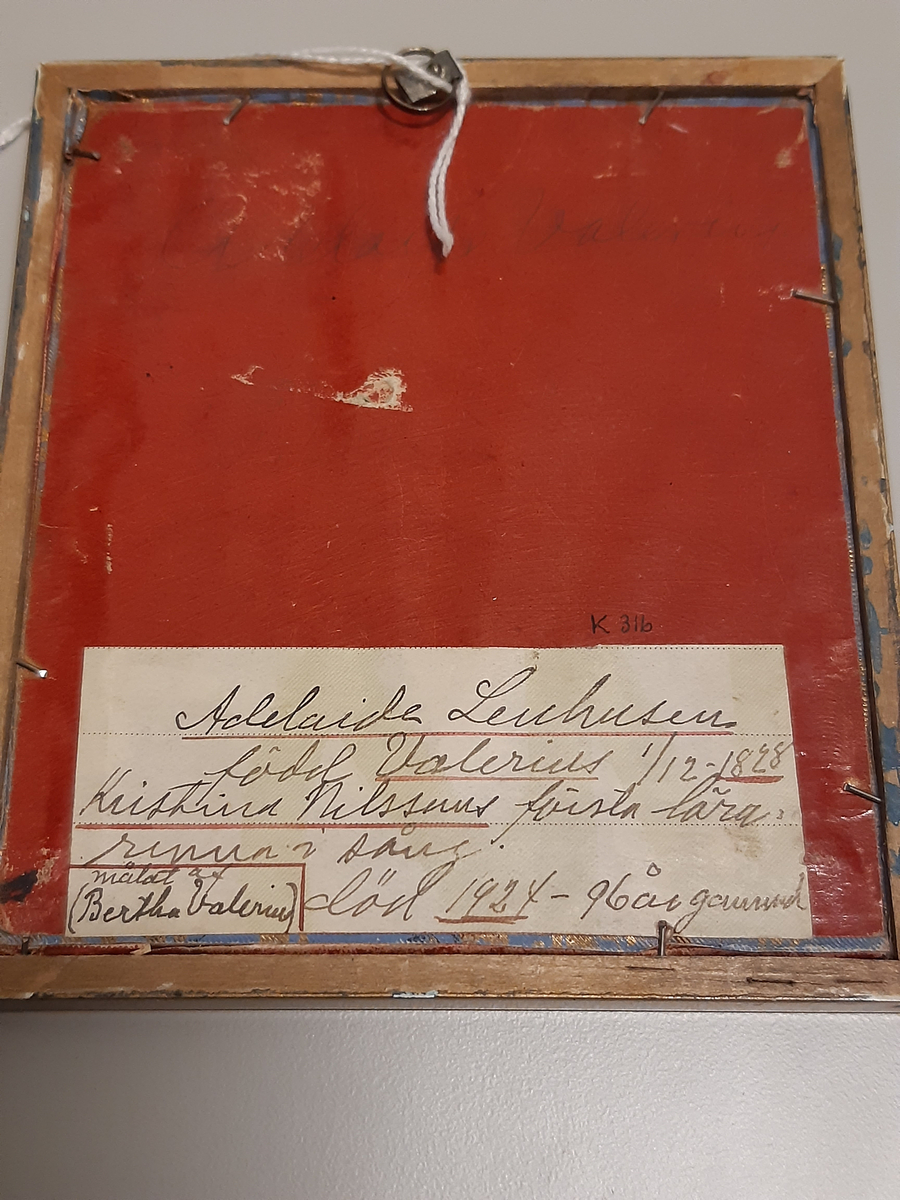 Adelaide Valerius
K 316
Adelaide Leuhusen
född Valerius 1/12-1828
Kristina Nilssons första lära-
rinna i sång.
målat av
(Bertha Valerius)
död 1924 - 96 år gammal